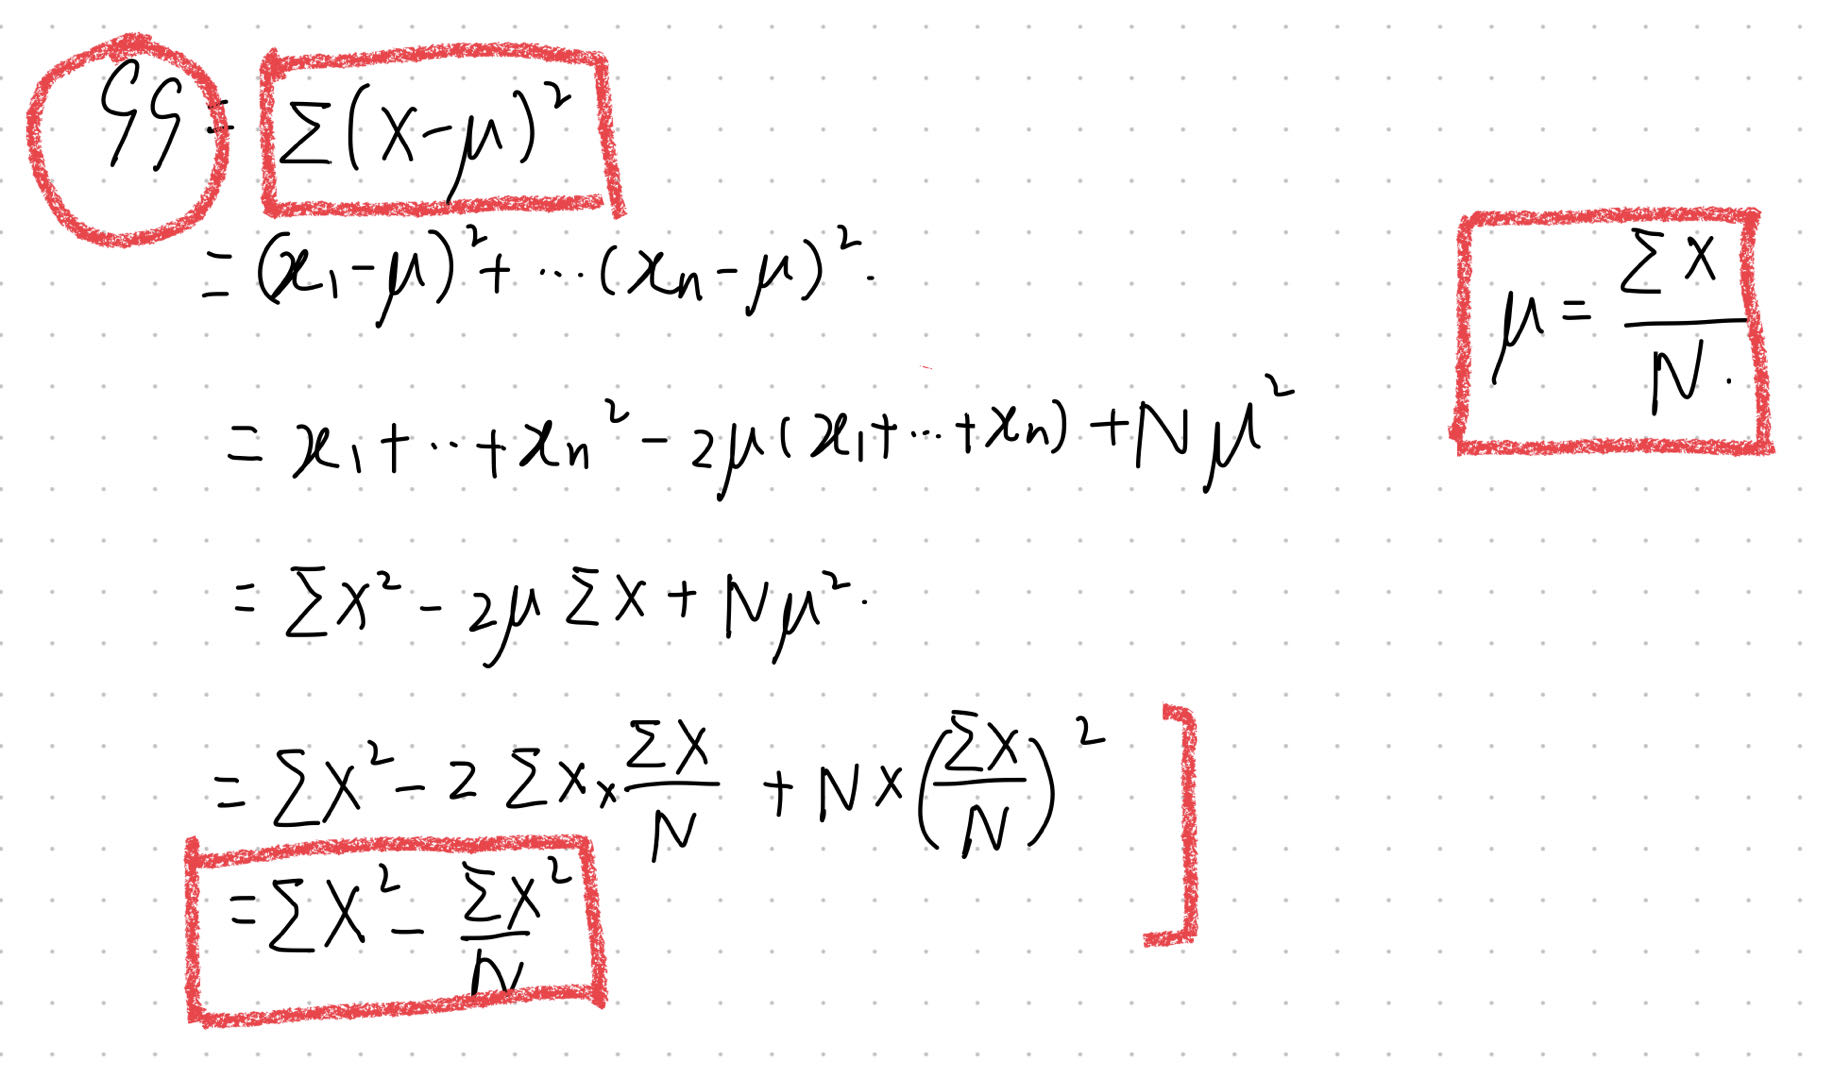 SS = Σ(X-μ)²
= (x₁-μ)² + ··· (xₙ-μ)².
μ = ΣX / N.
= x₁ + ·· + xₙ² - 2μ(x₁ + ··· + xₙ) + Nμ²
= ΣX² - 2μ ΣX + Nμ².
= ΣX² - 2 ΣX × ΣX/N + N × (ΣX/N)²
= ΣX² - ΣX²/N